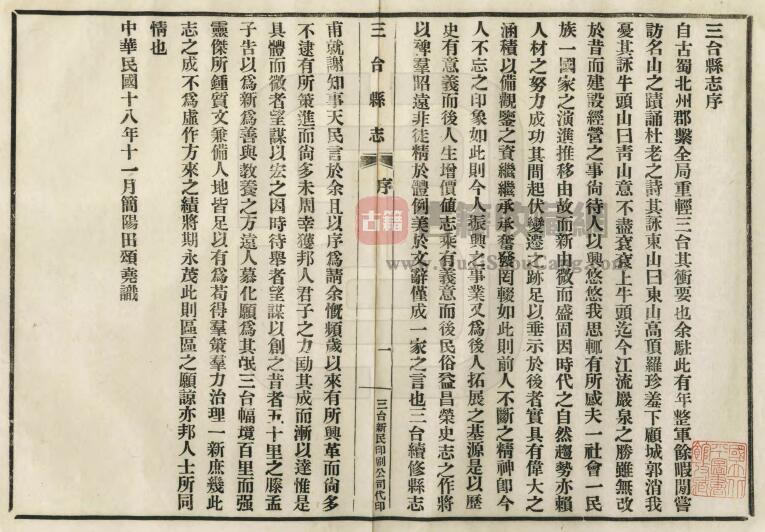 三台縣志序
自古蜀北州郡繫全局重輕三台其衝要也余駐此有年整軍餘暇間嘗
訪名山之蹟誦杜老之詩其詠東山曰東山高頂羅珍羞下顧城郭消我
憂其詠牛頭山曰靑山意不盡袞袞上牛頭迄今江流嚴泉之勝雖無改
於昔而建設經營之事尙待人以興悠悠我思輒有所感夫一社會一民
族一國家之演進推移由故而新由微而盛固因時代之自然趨勢亦賴
人材之努力成功其間起伏變遷之跡足以垂示於後者實具有偉大之
涵積以備觀鑒之資繼繼承承奮發罔輟如此則前人不斷之精神卽今
人不忘之印象如此則今人振興之事業又爲後人拓展之基源是以歷
史有意義而後人生增價値志乘有義意而後民俗益昌榮史志之作將
以裨羣昭遠非徒精於體例美於文辭僅成一家之言也三台續修縣志
三台縣志
序
一
三台新民印刷公司代印
甫就謝知事天民言於余且以序爲請余慨頻歲以來有所興革而尙多
不逮有所策進而尙多未周幸獲邦人君子之力勖其成而漸以達惟是
具體而微者望謀以宏之因時待舉者望謀以創之昔者五十里之滕孟
子告以爲新爲善與敎養之方遠人慕化願爲其氓三台幅墳百里而强
靈傑所鍾質文兼備人地皆足以有爲苟得羣策羣力治理一新庶幾此
志之成不爲虛作方來之績將期永茂此則區區之願諒亦邦人士所同
情也
中華民國十八年十一月簡陽田頌堯識
古籍
www.GujiShouCang.com